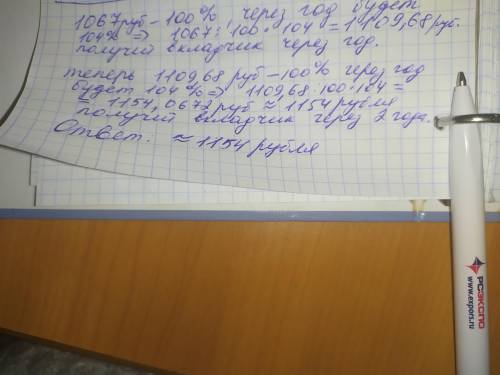 1067 руб – 100%, через год будет
104% ⇒ 1067 : 100 · 104 = 1109,68 руб.
получит вкладчик через год.
теперь 1109,68 руб – 100% через год
будет 104% ⇒ 1109,68 : 100 · 104 =
= 1154,0672 руб ≈ 1154 рубля
получит вкладчик через 2 года.
Ответ. ≈ 1154 рубля
РСЭКСПО
www.expors.ru